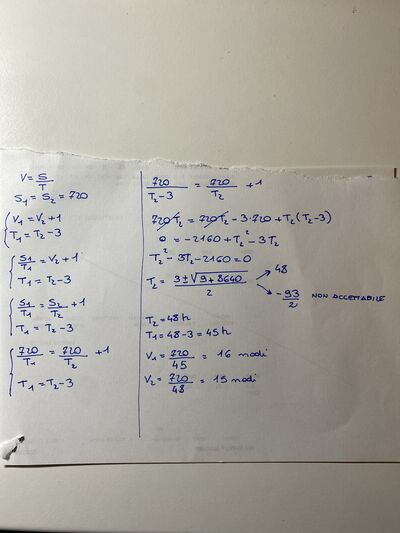 V = S/T
S₁ = S₂ = 720
{ V₁ = V₂ + 1
T₁ = T₂ - 3
{ S₁/T₁ = V₂ + 1
T₁ = T₂ - 3
{ S₁/T₁ = S₂/T₂ + 1
T₁ = T₂ - 3
{ 720/T₁ = 720/T₂ + 1
T₁ = T₂ - 3
720/(T₂ - 3) = 720/T₂ + 1
720T₂ = 720T₂ - 3·720 + T₂(T₂ - 3)
0 = -2160 + T₂² - 3T₂
T₂² - 3T₂ - 2160 = 0
T₂ = (3 ± √(9 + 8640))/2 → 48
→ -93/2 NON ACCETTABILE
T₂ = 48 h
T₁ = 48 - 3 = 45 h
V₁ = 720/45 = 16 nodi
V₂ = 720/48 = 15 nodi